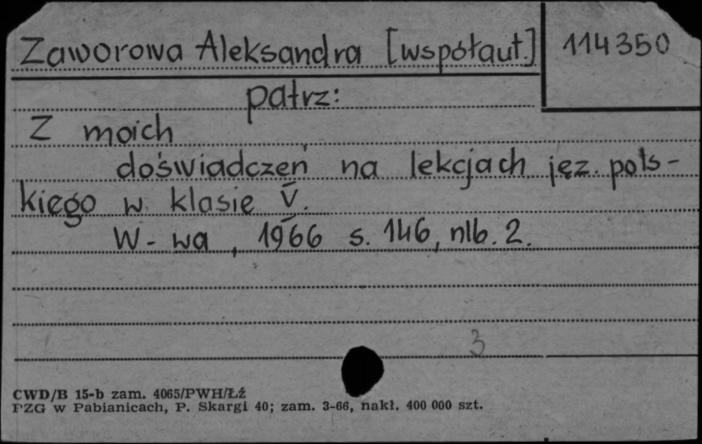 Zaworowa Aleksandra [współaut.] 114350
patrz:
Z moich
doświadczeń na lekcjach jęz. pols-
kiego w klasie V.
W-wa, 1966 s. 146, nlb. 2.
3
CWD/B 15-b zam. 4065/PWH/Łź
PZG w Pabianicach, P. Skargi 40; zam. 3-66, nakł. 400 000 szt.